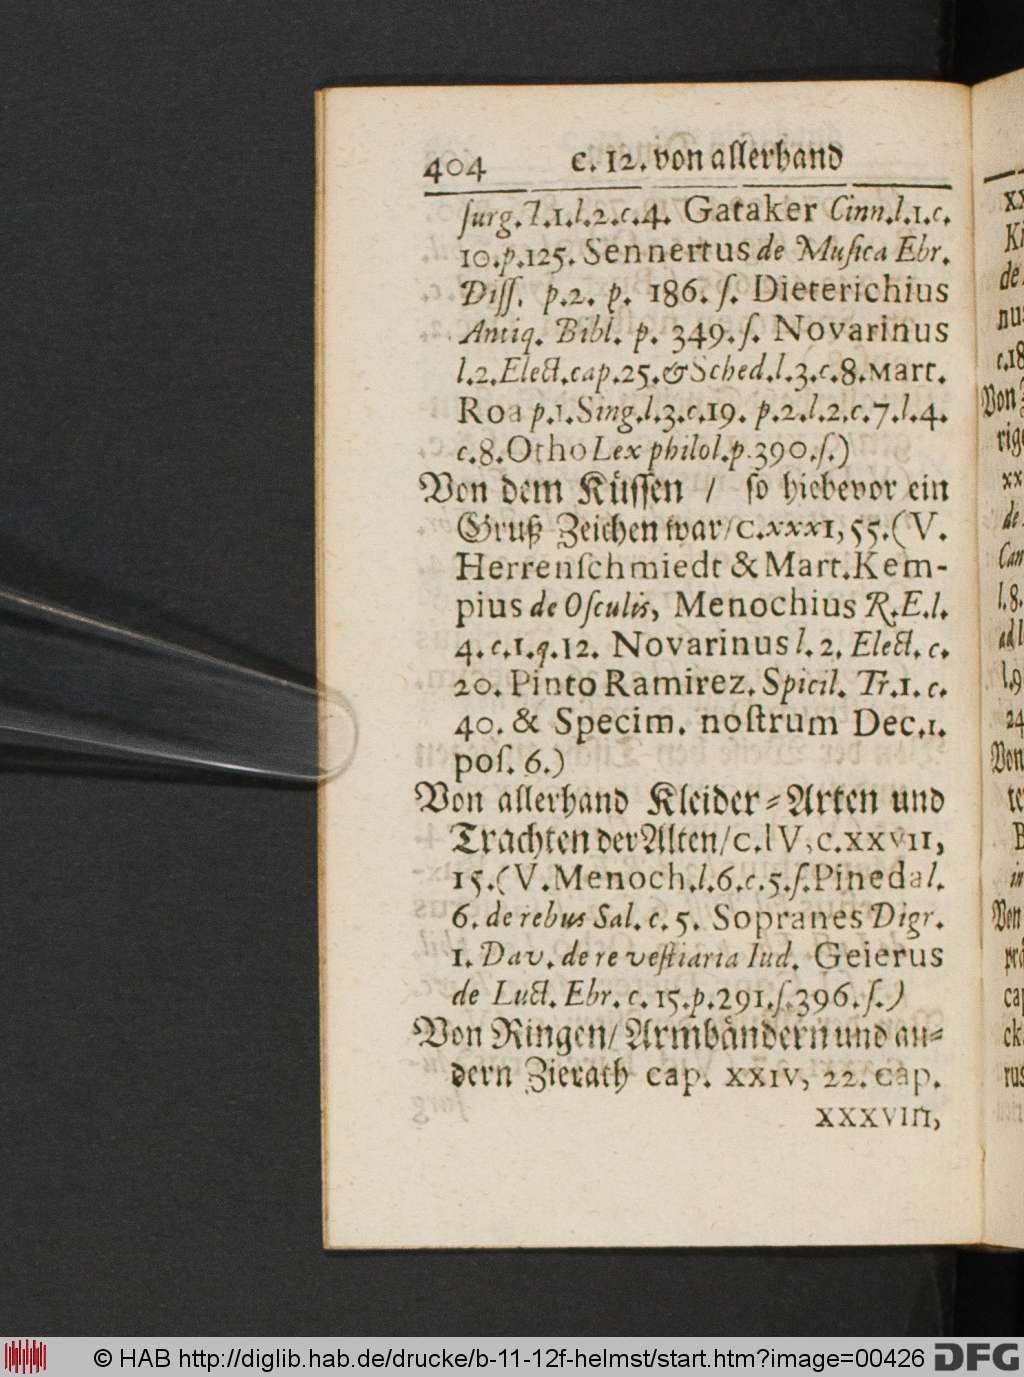 404 c. 12. von allerhand
ſurg. T. 1. l. 2. c. 4. Gataker Cinn. l. 1. c.
10. p. 125. Sennertus de Muſica Ebr.
Diſſ. p. 2. p. 186. ſ. Dieterichius
Antiq. Bibl. p. 349. ſ. Novarinus
l. 2. Elect. cap. 25. & Sched. l. 3. c. 8. Mart.
Roa p. 1. Sing. l. 3. c. 19. p. 2. l. 2. c. 7. l. 4.
c. 8. Otho Lex philol. p. 390. ſ.)
Von dem Küſſen / ſo hiebevor ein
Gruß Zeichen war / C. xxxI, 55. (V.
Herrenſchmiedt & Mart. Kem-
pius de Oſculis, Menochius R. E. l.
4. c. 1. q. 12. Novarinus l. 2. Elect. c.
20. Pinto Ramirez. Spicil. Tr. 1. c.
40. & Specim. noſtrum Dec. 1.
poſ. 6.)
Von allerhand Kleider-Arten und
Trachten der Alten / C. IV, C. XXVII,
15. (V. Menoch. l. 6. c. 5. ſ. Pineda l.
6. de rebus Sal. c. 5. Sopranes Digr.
1. Dav. de re veſtiaria Iud. Geierus
de Luct. Ebr. c. 15. p. 291. ſ. 396. ſ.)
Von Ringen / Armbändern und an-
dern Zierath cap. XXIV, 22. Cap.
XXXVIII,
© HAB http://diglib.hab.de/drucke/b-11-12f-helmst/start.htm?image=00426 DFG